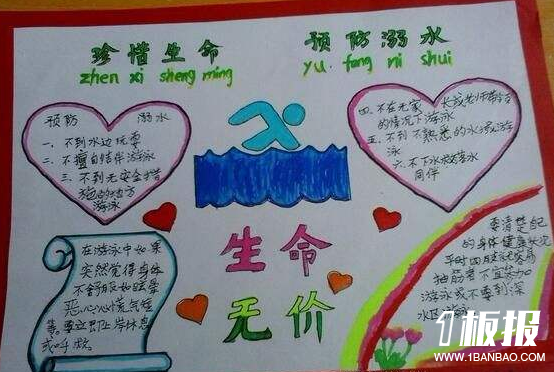 珍惜生命
zhen xi sheng ming
预防溺水
yu fang ni shui
预防 溺水
一、不到水边玩耍
二、不擅自结伴游泳
三、不到无安全措
施的地方
游泳
四、不在无家长或老师带
的情况下游泳
五、不到不熟悉的水域游
泳
六、不下水救落水
同伴
生命
无价
在游泳中如果
突然觉得身体
不舒服如眩晕
恶心心慌气短
等要立即上岸休息
或呼救
要清楚自己
的身体健康状况
平时四肢容易
抽筋者不宜参加
游泳或不要到深
水区游泳
1板报
WWW.1BANBAO.COM